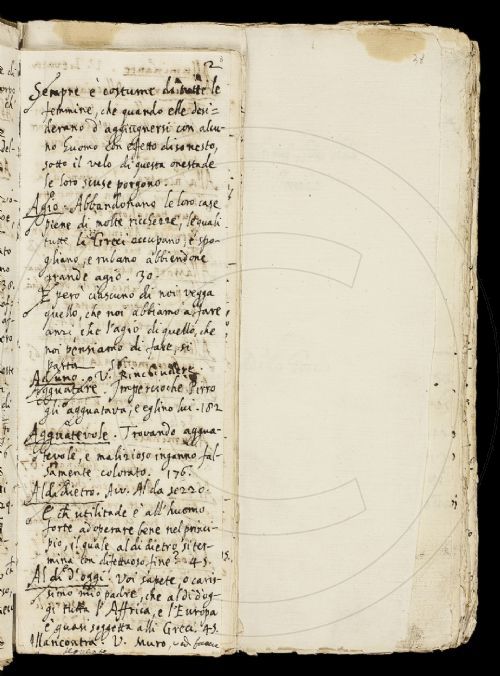 2
28
Sempre è costume di tutte le
femmine, che quando elle desi=
derano d'aggiugnersi con alcu-
no huomo con effetto disonesto,
sotto il velo di questa onestade
le loro scuse porgono.
Agio. Abbandonano le loro case
piene di molte ricchezze, le quali
tutte li Greci occupano, e spo-
gliano, e rubano abbiendone
grande agio. 30.
E però ciascuno di noi vegga
quello, che noi abbiamo a fare
anzi che l'agio di quello, che
noi pensiamo di fare, si
parta
Ad uno. V. Rinchiudere
Agguatare. Imperciochè Pirro
gli agguatava, e eglino lui. 182
Agguatevole. Trovando aggua-
tevole, e malizioso inganno fal-
samente colorato. 176.
Al da dietro. Avv. Al da sezzo
E ch utilitade è all'huomo
forte adoperare bene nel princi-
pio, il quale al di dietro si ter-
mina con difettuoso fine? 45.
Al dì d'oggi. Voi sapete, o caris-
simo mio padre, che al dì d'og-
gi tutta l'Affrica, e l'Europa
è quasi soggetta alli Greci. 45.
Allancontra V. Muro,